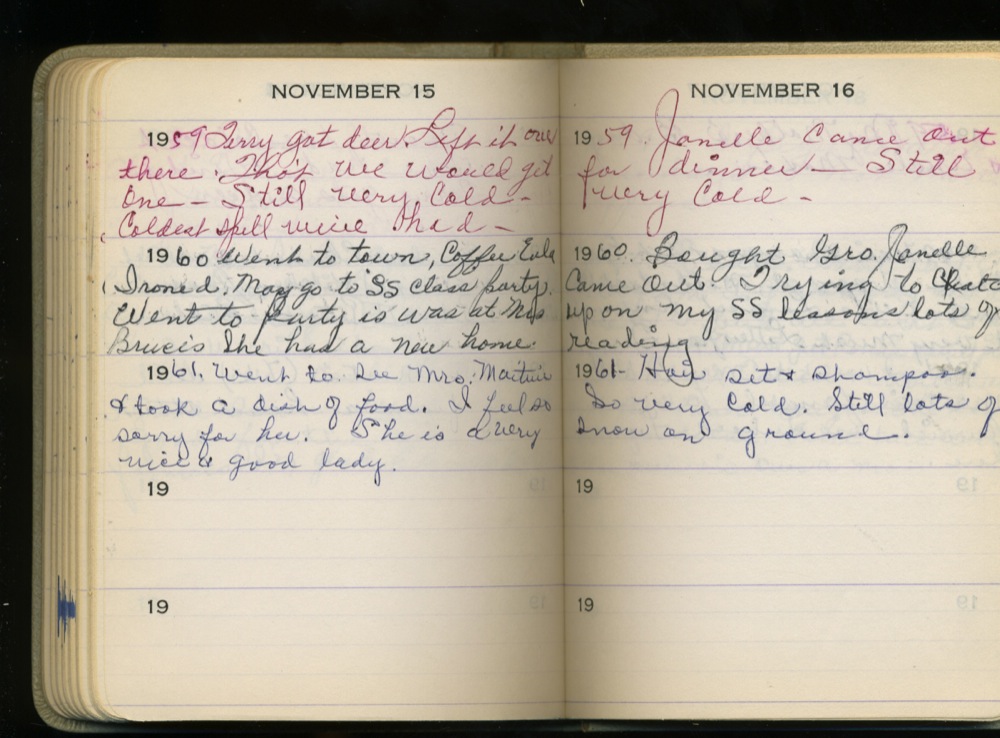 NOVEMBER 15
1959 Terry got deer. Left it over
there. That we would get
one - Still very Cold -
Coldest spell we've had -
1960 Went to town, Coffee Eula
Ironed. May go to SS class party.
Went to party is was at Mrs
Brucis She had a new home.
1961. Went to see Mrs. Martin
& took a dish of food. I feel so
sorry for her. She is a very
nice & good lady.
19
19
NOVEMBER 16
1959. Janelle Came Out
for dinner - Still
very Cold -
1960. Bought Gro. Janelle
Came Out. Trying to Catch
up on my SS lessons lots of
reading
1961- Hair set & shampoo.
So very Cold. Still lots of
snow on ground.
19
19